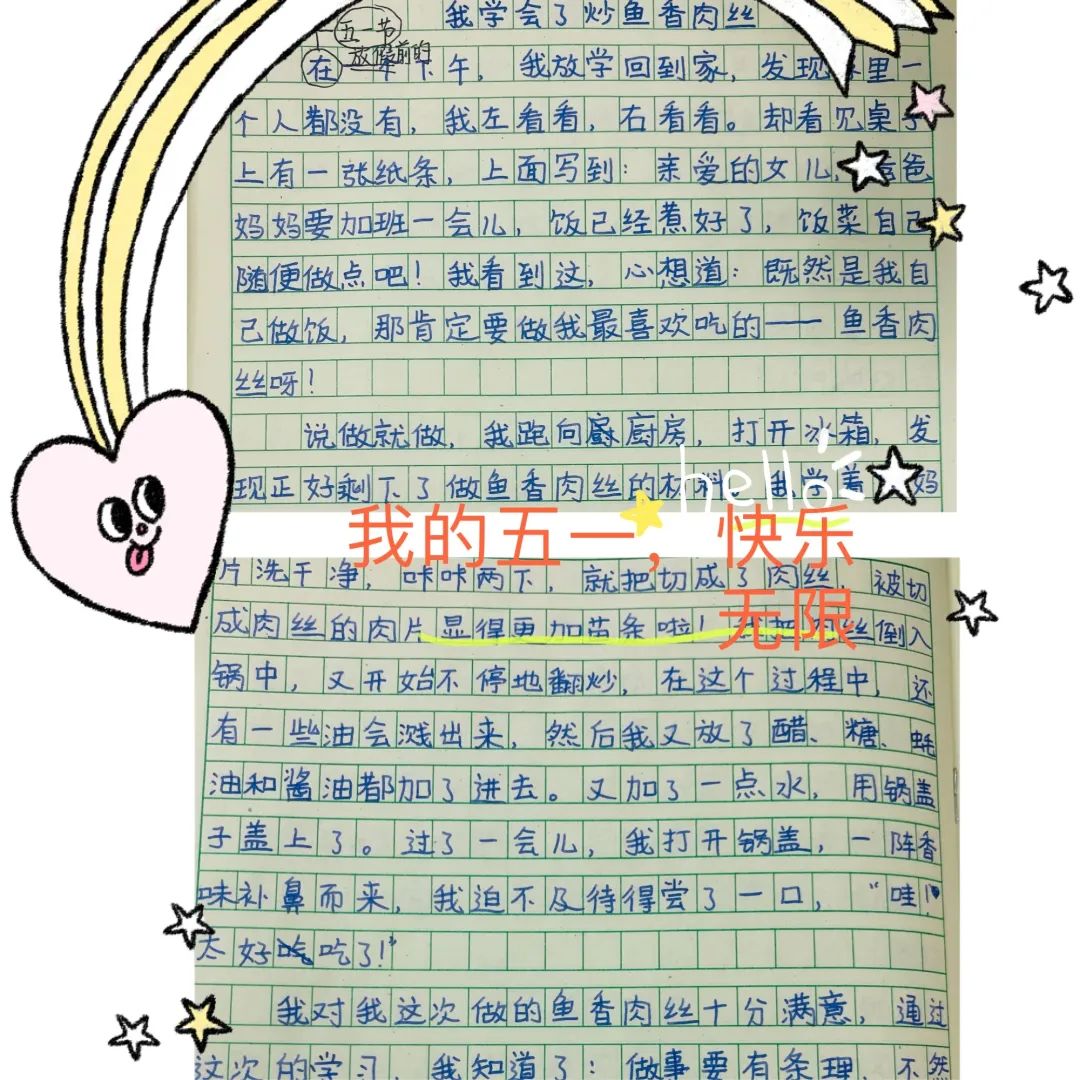 我学会了炒鱼香肉丝
五一节
放假前的
在一 下午，我放学回到家，发现 里一
个人都没有，我左看看，右看看。却看见桌子
上有一张纸条，上面写到：亲爱的女儿，爸爸
妈妈要加班一会儿，饭已经煮好了，饭菜自己
随便做点吧！我看到这，心想道：既然是我自
己做饭，那肯定要做我最喜欢吃的——鱼香肉
丝呀！
说做就做，我跑向厨房，打开冰箱，发
现正好剩下了做鱼香肉丝的材料，我学着 妈
hello
我的五一，快乐
无限
片洗干净，咔咔两下，就把切成了肉丝，被切
成肉丝的肉片显得更加苗条啦！ 把肉丝倒入
锅中，又开始不停地翻炒，在这个过程中，还
有一些油会溅出来，然后我又放了醋、糖、蚝
油和酱油都加了进去。又加了一点水，用锅盖
子盖上了。过了一会儿，我打开锅盖，一阵香
味补鼻而来，我迫不及待得尝了一口，“哇！
太好吃了！”
我对我这次做的鱼香肉丝十分满意，通过
这次的学习，我知道了：做事要有条理，不然